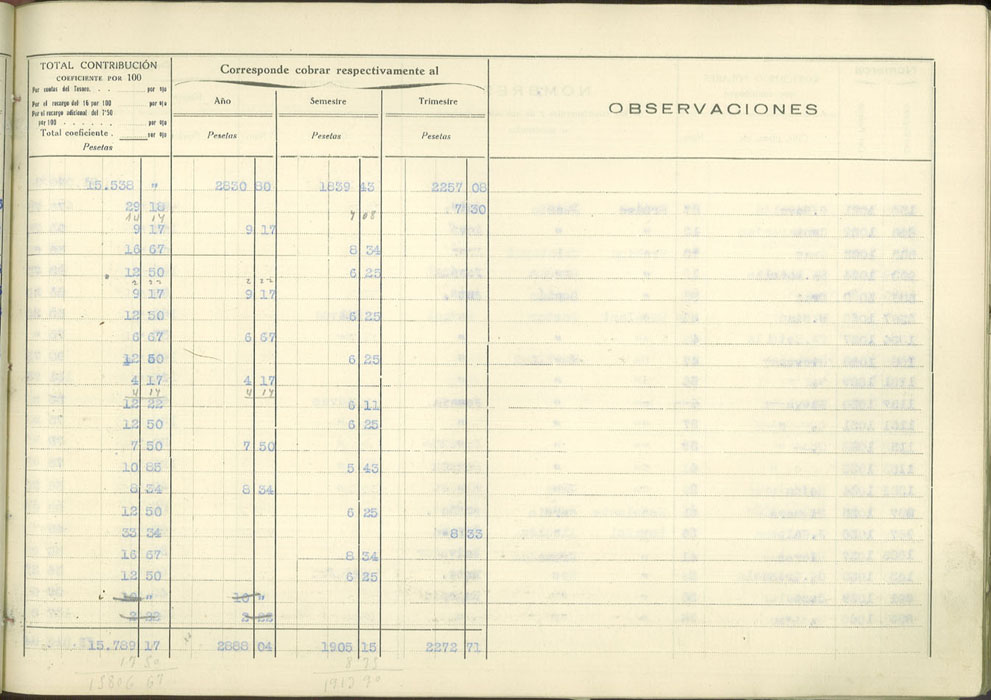 TOTAL CONTRIBUCIÓN
COEFICIENTE POR 100
Por cuotas del Tesoro. . . por 0/0
Por el recargo del 16 por 100 por 0/0
Por el recargo adicional del 7'50
por 100 . . . . . . por 0/0
Total coeficiente . por 0/0
Pesetas
Corresponde cobrar respectivamente al
Año Semestre Trimestre
Pesetas Pesetas Pesetas
OBSERVACIONES
15.538 " 2830 80 1839 43 2257 08
29 18 7 30
14 14 7 08
9 17 9 17
16 67 8 34
12 50 6 25
2 22 2 22
9 17 9 17
12 50 6 25
6 67 6 67
12 50 6 25
4 17 4 17
4 14 4 14
12 22 6 11
12 50 6 25
7 50 7 50
10 85 5 43
8 34 8 34
12 50 6 25
33 34 8 33
16 67 8 34
12 50 6 25
16 " 16 "
2 22 2 22
15.789 17 2888 04 1905 15 2272 71
17 50 8 75
15806 67 1913 90